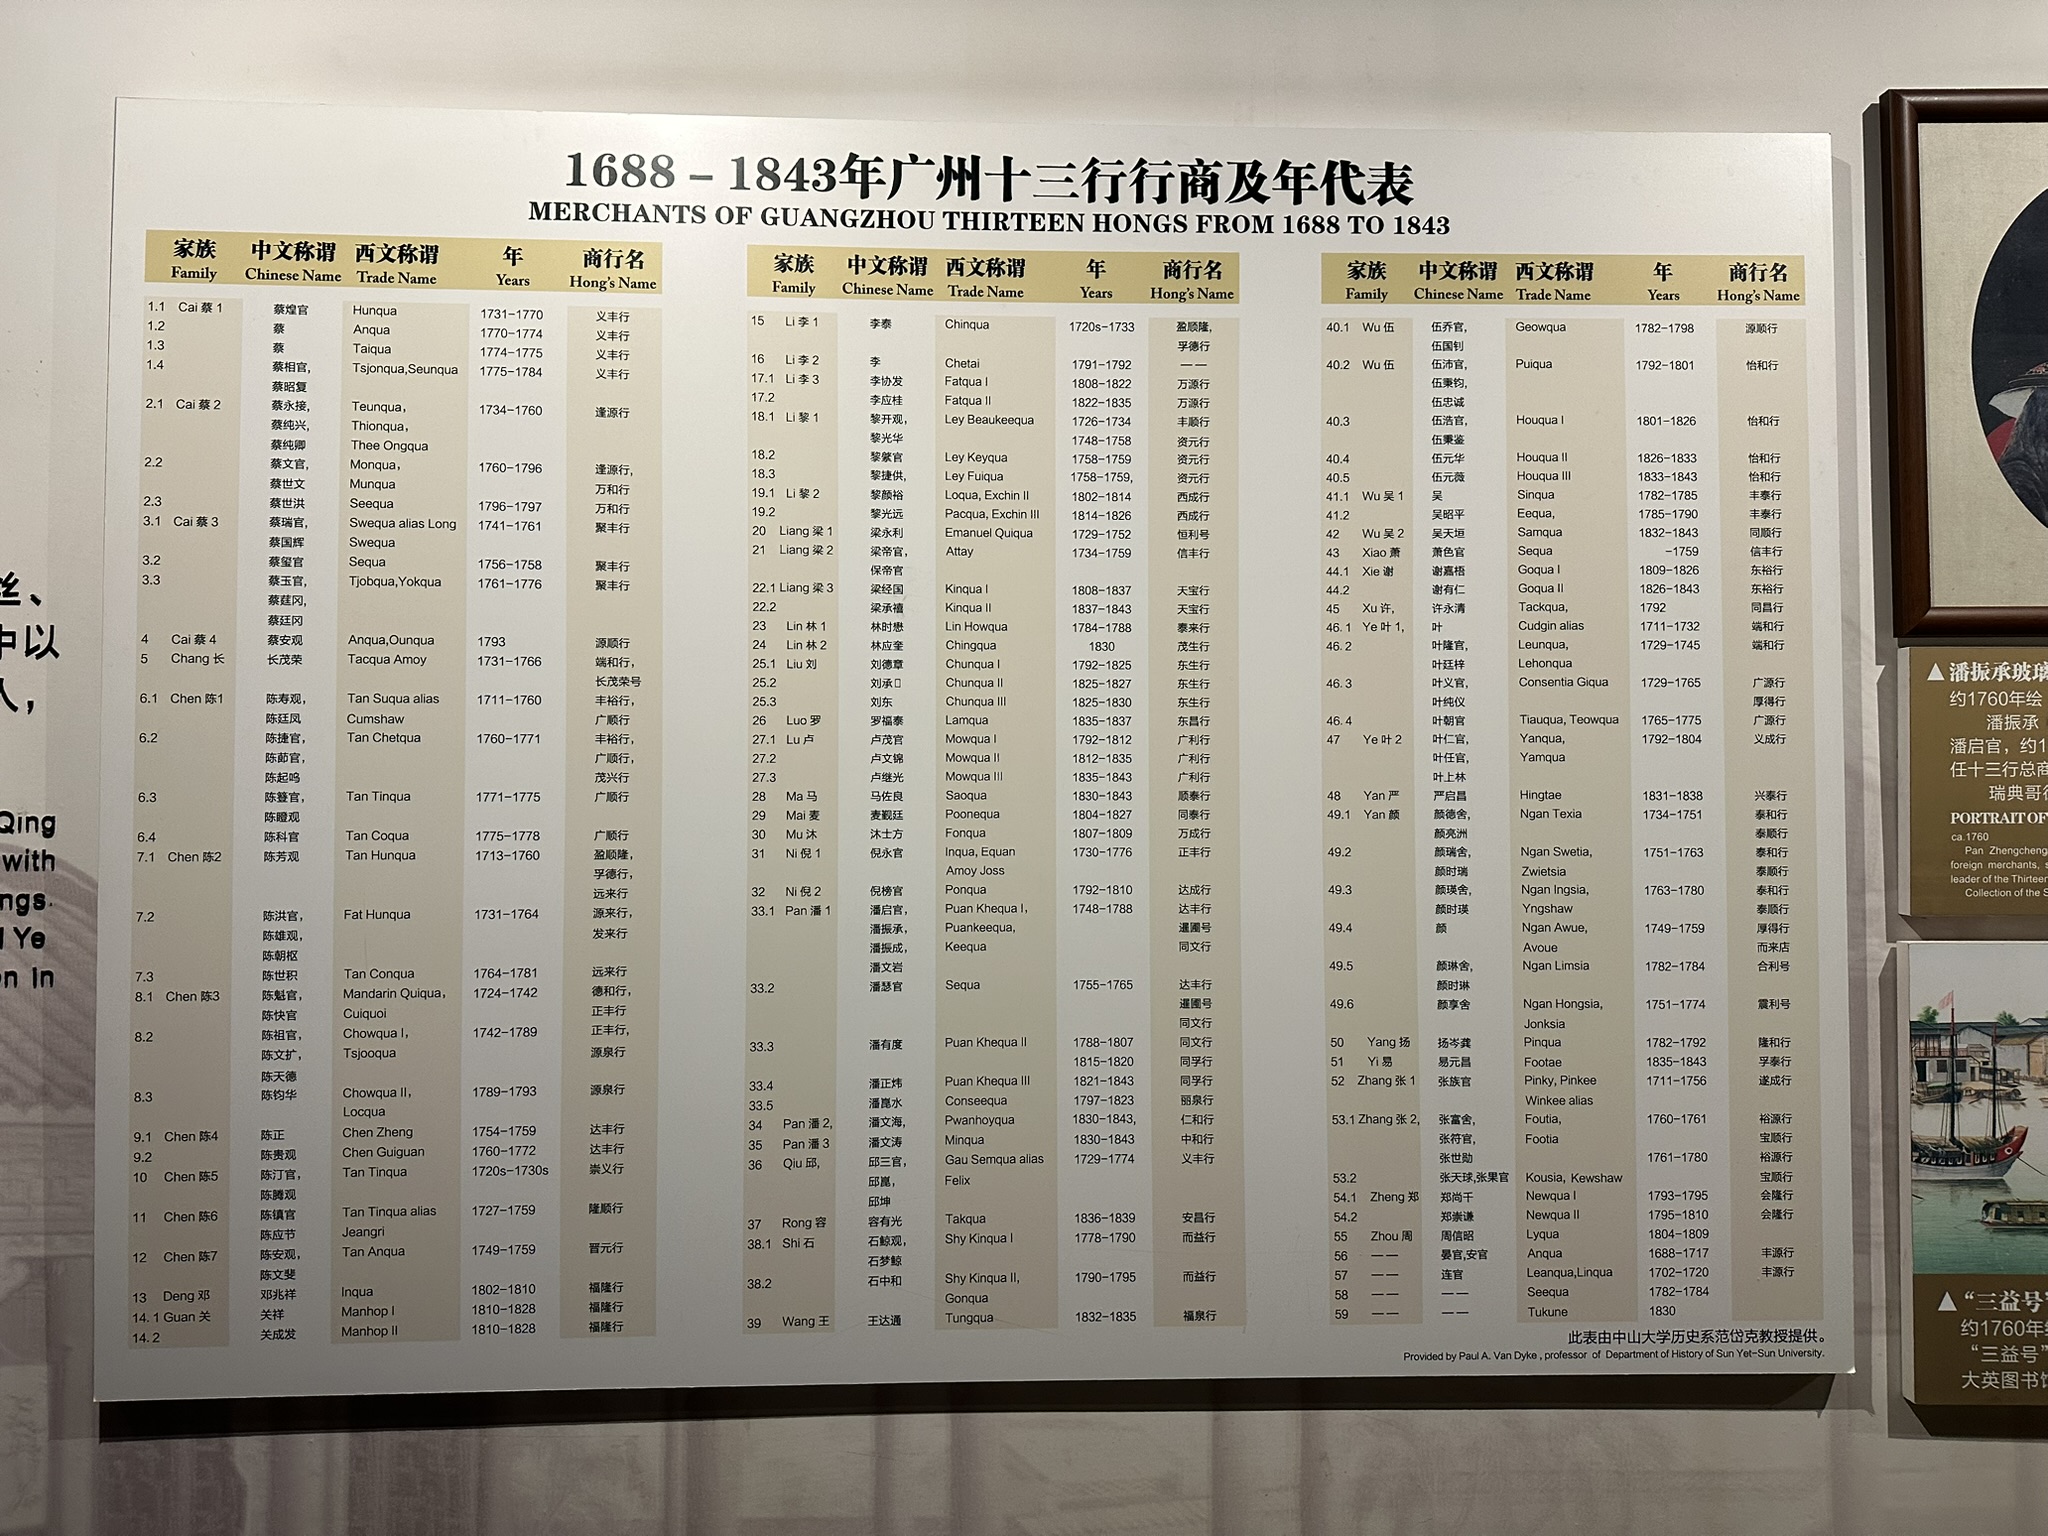 1688 – 1843年广州十三行行商及年代表
MERCHANTS OF GUANGZHOU THIRTEEN HONGS FROM 1688 TO 1843
家族 中文称谓 西文称谓 年 商行名
Family Chinese Name Trade Name Years Hong's Name
1.1 Cai 蔡 1 蔡煌官 Hunqua 1731-1770 义丰行
1.2 蔡 Anqua 1770-1774 义丰行
1.3 蔡 Taiqua 1774-1775 义丰行
1.4 蔡相官, Tsjonqua,Seunqua 1775-1784 义丰行
蔡昭复
2.1 Cai 蔡 2 蔡永接, Teunqua, 1734-1760 逢源行
蔡纯兴, Thionqua,
蔡纯卿 Thee Ongqua
2.2 蔡文官, Monqua, 1760-1796 逢源行,
蔡世文 Munqua 万和行
2.3 蔡世洪 Seequa 1796-1797 万和行
3.1 Cai 蔡 3 蔡瑞官, Swequa alias Long 1741-1761 聚丰行
蔡国辉 Swequa
3.2 蔡玺官 Sequa 1756-1758 聚丰行
3.3 蔡玉官, Tjobqua,Yokqua 1761-1776 聚丰行
蔡莛冈,
蔡廷冈
4 Cai 蔡 4 蔡安观 Anqua,Ounqua 1793 源顺行
5 Chang 长 长茂荣 Tacqua Amoy 1731-1766 端和行,
长茂荣号
6.1 Chen 陈1 陈寿观, Tan Suqua alias 1711-1760 丰裕行,
陈廷凤 Cumshaw 广顺行
6.2 陈捷官, Tan Chetqua 1760-1771 丰裕行,
陈茆官, 广顺行,
陈起鸣 茂兴行
6.3 陈簦官, Tan Tinqua 1771-1775 广顺行
陈瞪观
6.4 陈科官 Tan Coqua 1775-1778 广顺行
7.1 Chen 陈2 陈芳观 Tan Hunqua 1713-1760 盈顺隆,
孚德行,
远来行
7.2 陈洪官, Fat Hunqua 1731-1764 源来行,
陈雄观, 发来行
陈朝枢
7.3 陈世积 Tan Conqua 1764-1781 远来行
8.1 Chen 陈3 陈魁官, Mandarin Quiqua, 1724-1742 德和行,
陈快官 Cuiquoi 正丰行
8.2 陈祖官, Chowqua I, 1742-1789 正丰行,
陈文扩, Tsjooqua 源泉行
陈天德
8.3 陈钧华 Chowqua II, 1789-1793 源泉行
Locqua
9.1 Chen 陈4 陈正 Chen Zheng 1754-1759 达丰行
9.2 陈贵观 Chen Guiguan 1760-1772 达丰行
10 Chen 陈5 陈汀官, Tan Tinqua 1720s-1730s 崇义行
陈腾观
11 Chen 陈6 陈镇官 Tan Tinqua alias 1727-1759 隆顺行
陈应节 Jeangri
12 Chen 陈7 陈安观, Tan Anqua 1749-1759 晋元行
陈文斐
13 Deng 邓 邓兆祥 Inqua 1802-1810 福隆行
14. 1 Guan 关 关祥 Manhop I 1810-1828 福隆行
14. 2 关成发 Manhop II 1810-1828 福隆行
家族 中文称谓 西文称谓 年 商行名
Family Chinese Name Trade Name Years Hong's Name
15 Li 李 1 李泰 Chinqua 1720s-1733 盈顺隆,
孚德行
16 Li 李 2 李 Chetai 1791-1792 ——
17.1 Li 李 3 李协发 Fatqua I 1808-1822 万源行
17.2 李应桂 Fatqua II 1822-1835 万源行
18.1 Li 黎 1 黎开观, Ley Beaukeequa 1726-1734 丰顺行
黎光华 1748-1758 资元行
18.2 黎篆官 Ley Keyqua 1758-1759 资元行
18.3 黎捷供, Ley Fuiqua 1758-1759, 资元行
19.1 Li 黎 2 黎颜裕 Loqua, Exchin II 1802-1814 西成行
19.2 黎光远 Pacqua, Exchin III 1814-1826 西成行
20 Liang 梁 1 梁永利 Emanuel Quiqua 1729-1752 恒利号
21 Liang 梁 2 梁帝官, Attay 1734-1759 信丰行
保帝官
22.1 Liang 梁 3 梁经国 Kinqua I 1808-1837 天宝行
22.2 梁承禧 Kinqua II 1837-1843 天宝行
23 Lin 林 1 林时懋 Lin Howqua 1784-1788 泰来行
24 Lin 林 2 林应奎 Chingqua 1830 茂生行
25.1 Liu 刘 刘德章 Chunqua I 1792-1825 东生行
25.2 刘承□ Chunqua II 1825-1827 东生行
25.3 刘东 Chunqua III 1825-1830 东生行
26 Luo 罗 罗福泰 Lamqua 1835-1837 东昌行
27.1 Lu 卢 卢茂官 Mowqua I 1792-1812 广利行
27.2 卢文锦 Mowqua II 1812-1835 广利行
27.3 卢继光 Mowqua III 1835-1843 广利行
28 Ma 马 马佐良 Saoqua 1830-1843 顺泰行
29 Mai 麦 麦觐廷 Poonequa 1804-1827 同泰行
30 Mu 沐 沐士方 Fonqua 1807-1809 万成行
31 Ni 倪 1 倪永官 Inqua, Equan 1730-1776 正丰行
Amoy Joss
32 Ni 倪 2 倪榜官 Ponqua 1792-1810 达成行
33.1 Pan 潘 1 潘启官, Puan Khequa I, 1748-1788 达丰行
潘振承, Puankeequa, 暹圃号
潘振成, Keequa 同文行
潘文岩
33.2 潘瑟官 Sequa 1755-1765 达丰行
暹圃号
同文行
33.3 潘有度 Puan Khequa II 1788-1807 同文行
1815-1820 同孚行
33.4 潘正炜 Puan Khequa III 1821-1843 同孚行
33.5 潘崑水 Conseequa 1797-1823 丽泉行
34 Pan 潘 2, 潘文海, Pwanhoyqua 1830-1843, 仁和行
35 Pan 潘 3 潘文涛 Minqua 1830-1843 中和行
36 Qiu 邱, 邱三官, Gau Semqua alias 1729-1774 义丰行
邱崑, Felix
邱坤
37 Rong 容 容有光 Takqua 1836-1839 安昌行
38.1 Shi 石 石鲸观, Shy Kinqua I 1778-1790 而益行
石梦鲸
38.2 石中和 Shy Kinqua II, 1790-1795 而益行
Gonqua
39 Wang 王 王达通 Tungqua 1832-1835 福泉行
家族 中文称谓 西文称谓 年 商行名
Family Chinese Name Trade Name Years Hong's Name
40.1 Wu 伍 伍乔官, Geowqua 1782-1798 源顺行
伍国钊
40.2 Wu 伍 伍沛官, Puiqua 1792-1801 怡和行
伍秉钧,
伍忠诚
40.3 伍浩官, Houqua I 1801-1826 怡和行
伍秉鉴
40.4 伍元华 Houqua II 1826-1833 怡和行
40.5 伍元薇 Houqua III 1833-1843 怡和行
41.1 Wu 吴 1 吴 Sinqua 1782-1785 丰泰行
41.2 吴昭平 Eequa, 1785-1790 丰泰行
42 Wu 吴 2 吴天垣 Samqua 1832-1843 同顺行
43 Xiao 萧 萧色官 Sequa -1759 信丰行
44.1 Xie 谢 谢嘉梧 Goqua I 1809-1826 东裕行
44.2 谢有仁 Goqua II 1826-1843 东裕行
45 Xu 许, 许永清 Tackqua, 1792 同昌行
46. 1 Ye 叶 1, 叶 Cudgin alias 1711-1732 端和行
46. 2 叶隆官, Leunqua, 1729-1745 端和行
叶廷梓 Lehonqua
46. 3 叶义官, Consentia Giqua 1729-1765 广源行
叶纯仪 厚得行
46. 4 叶朝官 Tiauqua, Teowqua 1765-1775 广源行
47 Ye 叶 2 叶仁官, Yanqua, 1792-1804 义成行
叶任官, Yamqua
叶上林
48 Yan 严 严启昌 Hingtae 1831-1838 兴泰行
49.1 Yan 颜 颜德舍, Ngan Texia 1734-1751 泰和行
颜亮洲 泰顺行
49.2 颜瑞舍, Ngan Swetia, 1751-1763 泰和行
颜时瑞 Zwietsia 泰顺行
49.3 颜瑛舍, Ngan Ingsia, 1763-1780 泰和行
颜时瑛 Yngshaw 泰顺行
49.4 颜 Ngan Awue, 1749-1759 厚得行
Avoue 而来店
49.5 颜琳舍, Ngan Limsia 1782-1784 合利号
颜时琳
49.6 颜享舍 Ngan Hongsia, 1751-1774 震利号
Jonksia
50 Yang 扬 扬岑龚 Pinqua 1782-1792 隆和行
51 Yi 易 易元昌 Footae 1835-1843 孚泰行
52 Zhang 张 1 张族官 Pinky, Pinkee 1711-1756 遂成行
Winkee alias
53.1 Zhang 张 2, 张富舍, Foutia, 1760-1761 裕源行
张符官, Footia 宝顺行
张世勋 1761-1780 裕源行
53.2 张天球,张果官 Kousia, Kewshaw 宝顺行
54.1 Zheng 郑 郑尚千 Newqua I 1793-1795 会隆行
54.2 郑崇谦 Newqua II 1795-1810 会隆行
55 Zhou 周 周信昭 Lyqua 1804-1809
56 —— 晏官,安官 Anqua 1688-1717 丰源行
57 —— 连官 Leanqua,Linqua 1702-1720 丰源行
58 —— —— Seequa 1782-1784
59 —— —— Tukune 1830
此表由中山大学历史系范岱克教授提供。
Provided by Paul A. Van Dyke , professor of Department of History of Sun Yet-Sun University.
丝、
中以
人,
Qing
with
ngs.
Ye
n in
▲潘振承玻璃
约1760年绘
潘振承
潘启官,约1
任十三行总商
瑞典哥
PORTRAIT OF
ca.1760
Pan Zhengcheng
foreign merchants, s
leader of the Thirteen
Collection of the S
▲“三益号”
约1760年绘
“三益号”
大英图书馆